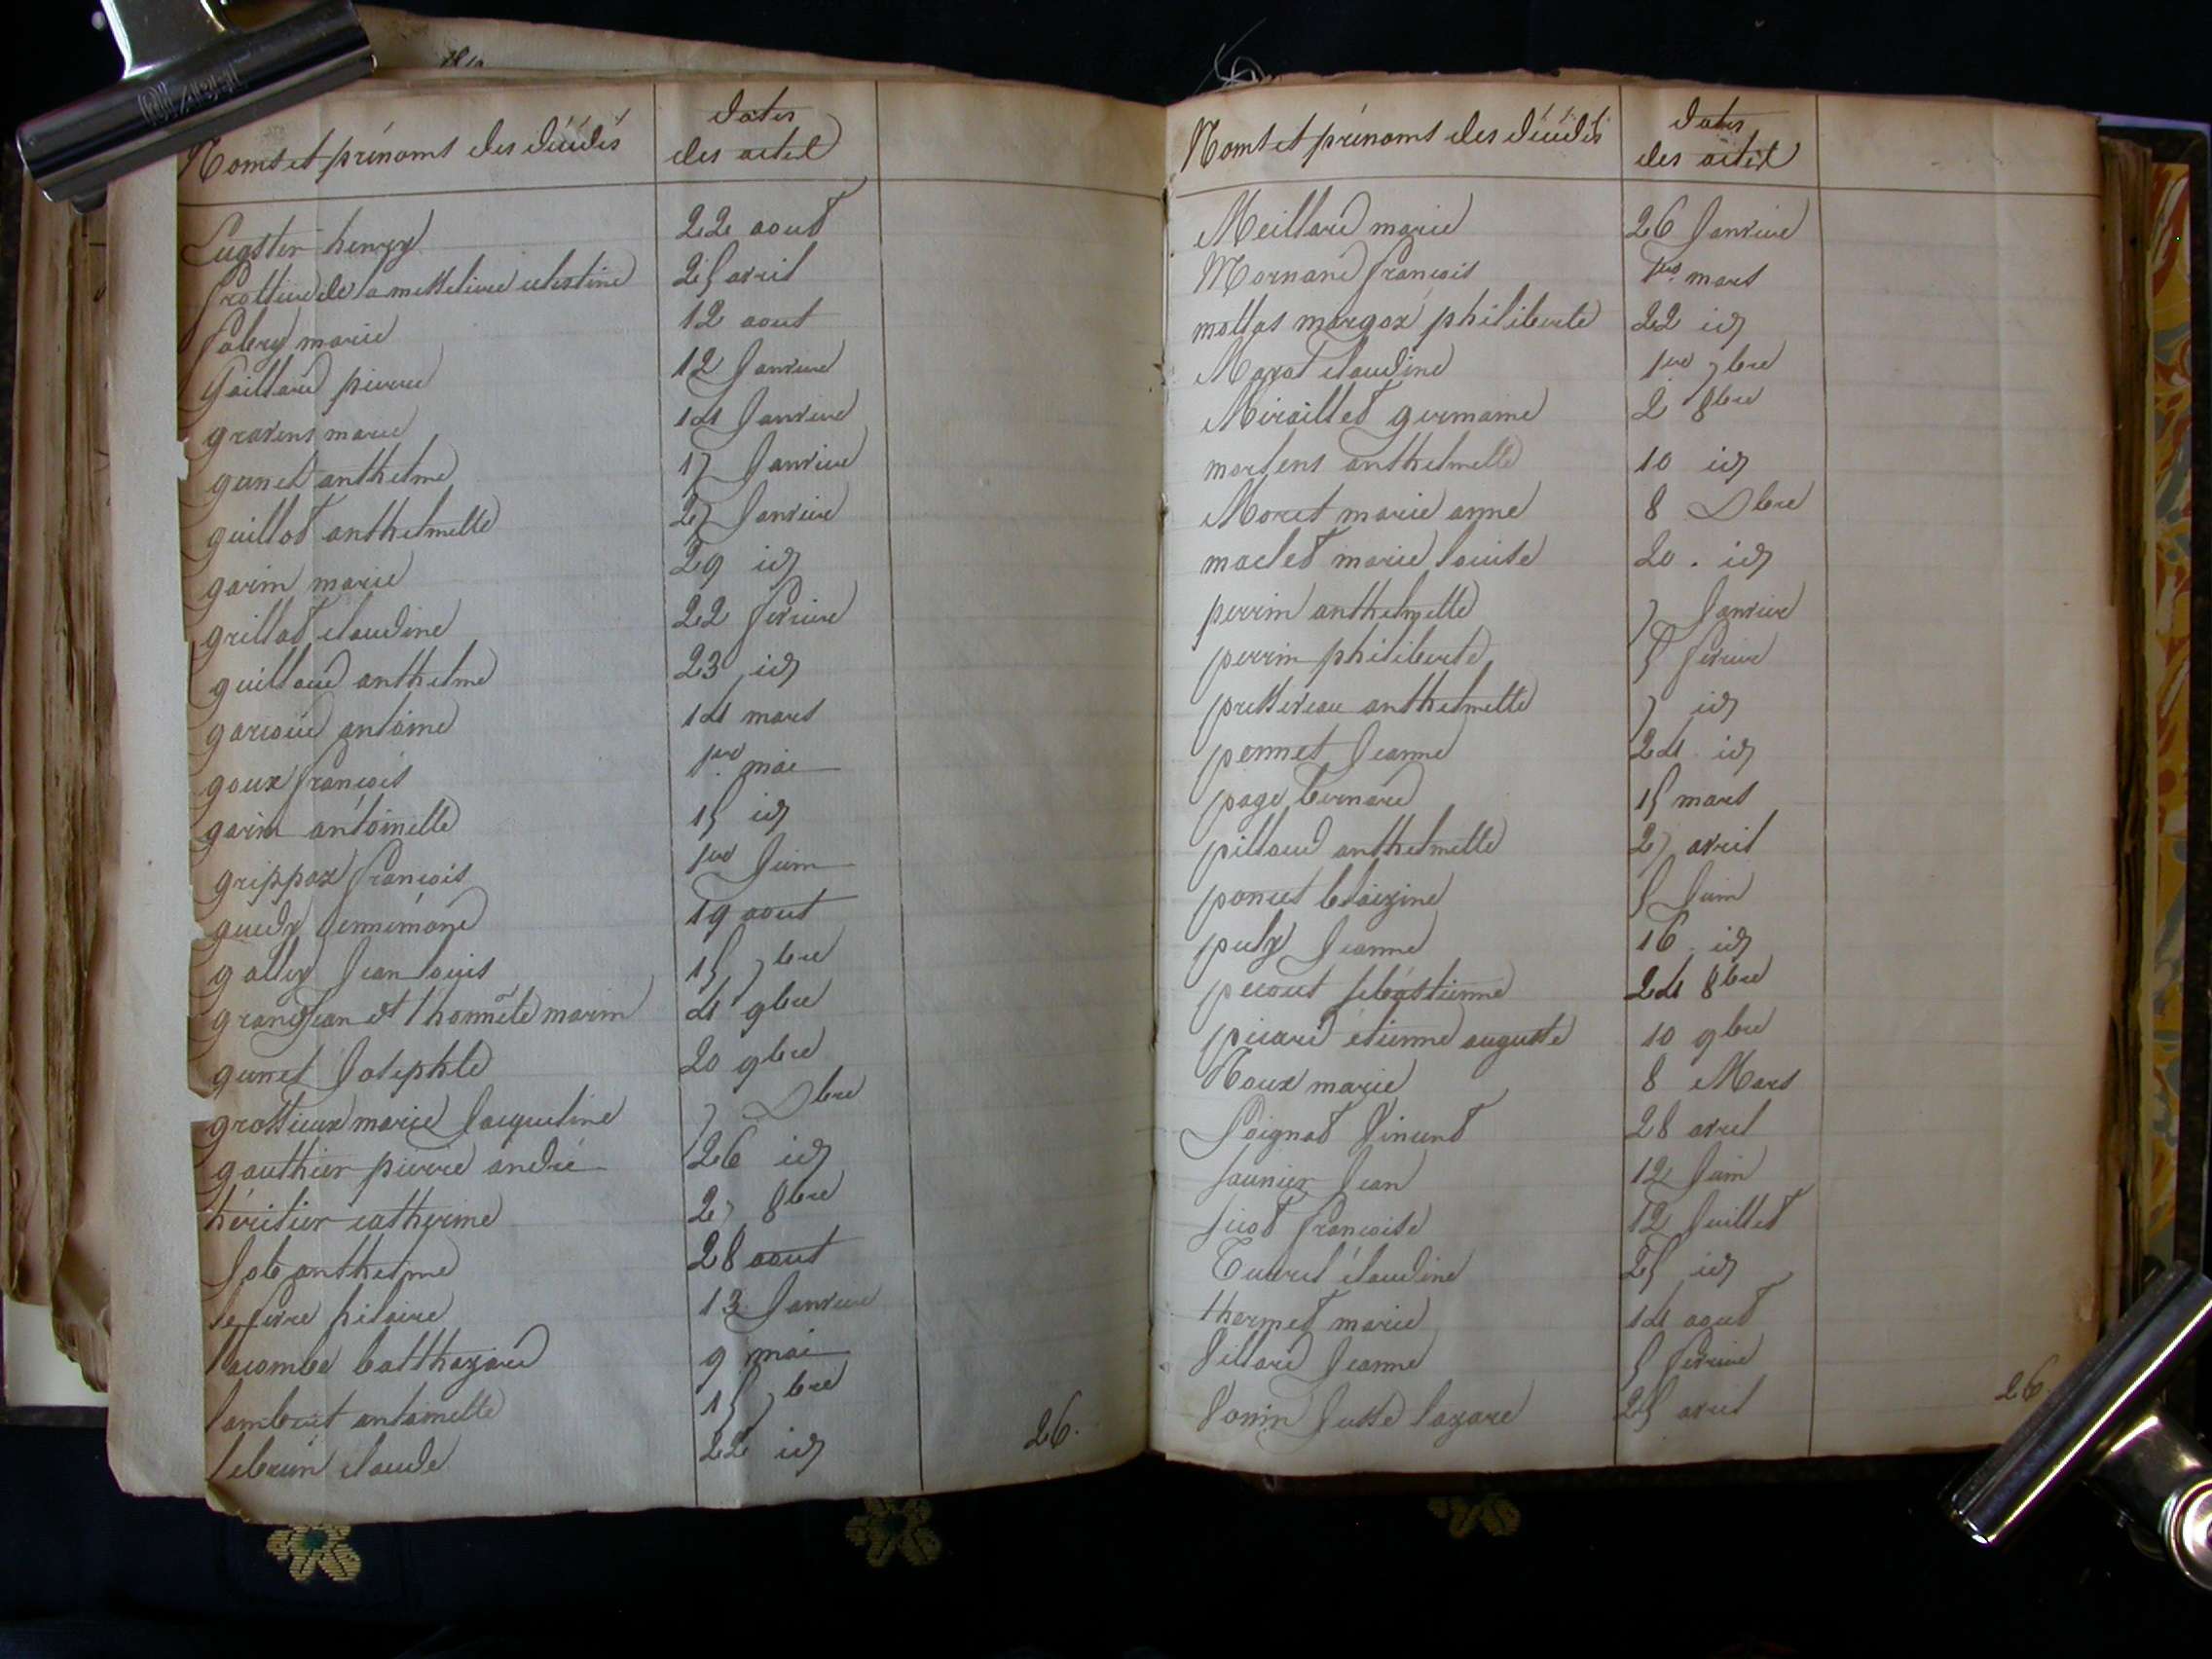 Noms et prénoms des décédés
dates
des actes
Eugster henry 22 aout
frottier de la messeliere celestine 25 avril
fabry marie 12 aout
Gaillard pierre 12 Janvier
gravens marie 14 Janvier
gunet anthelme 17 Janvier
guillot anthelmette 27 Janvier
garin marie 29 id
grillat claudine 22 fevrier
guilland anthelme 23 id
antoine 14 mars
goux françois 1er mai
garin antoinette 15 id
grippox françois 1er Juin
19 aout
gallix Jean louis 15 7bre
grandJean et thomé marin 4 9bre
gunet Josephte 20 9bre
grossieux marie Jacqueline 7 Dbre
gauthier pierre andré 26 id
héritier catherine 27 8bre
Job anthelme 28 aout
lefevre hilaire 13 Janvier
lacombe balthazard 9 mai
lambert antoinette 15 7bre
lebrun claude 22 id
26.
Noms et prénoms des décédés
dates
des actes
Meillard marie 26 Janvier
Mornand françois 1er mars
mollas margox philiberte 22 id
Mayat claudine 1er 7bre
Miraillet germaine 2 8bre
martens anthelmette 10 id
Moret marie anne 8 Dbre
maclet marie louise 20. id
perrin anthelmette 7 Janvier
perrin philiberte 5 fevrier
pressereau anthelmette 7 id
ponnet Jeanne 24 id
page bernard 15 mars
pilland anthelmette 27 avril
poncet blaizine 5 Juin
pulx Jeanne 16 id
sebastienne 24 8bre
picard étienne auguste 10 9bre
Roux marie 8 Mars
Soignat Vincent 28 avril
saunier Jean 12 Juin
sicot françoise 12 Juillet
claudine 25 id
thermet marie 14 aout
Villard Jeanne 5 fevrier
Vonin Juste lazare 25 avril
26.